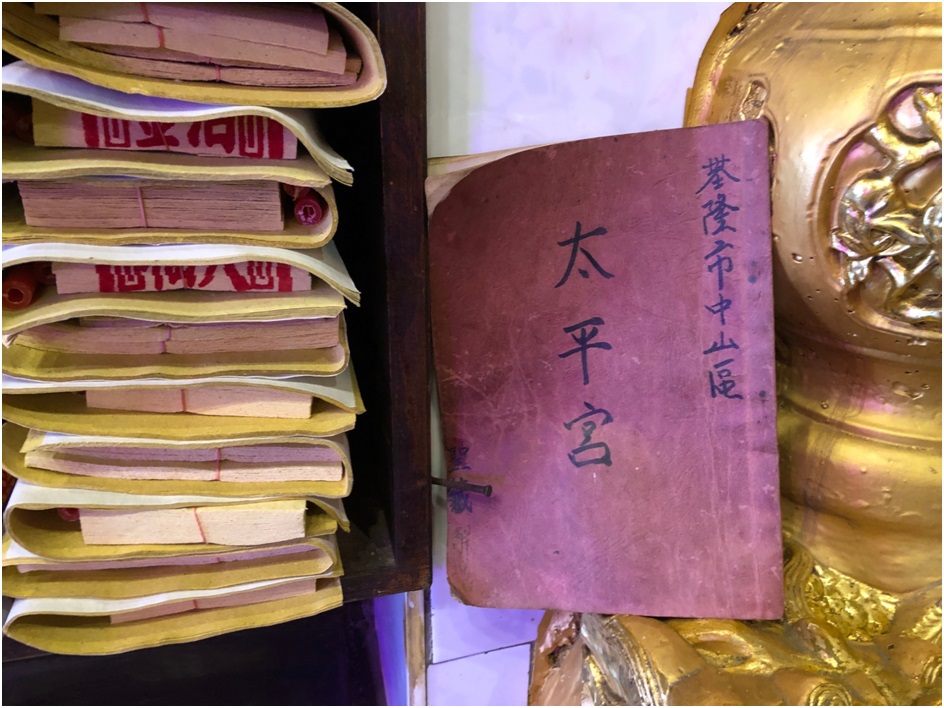 基隆市中山區
太平宮
聖藏